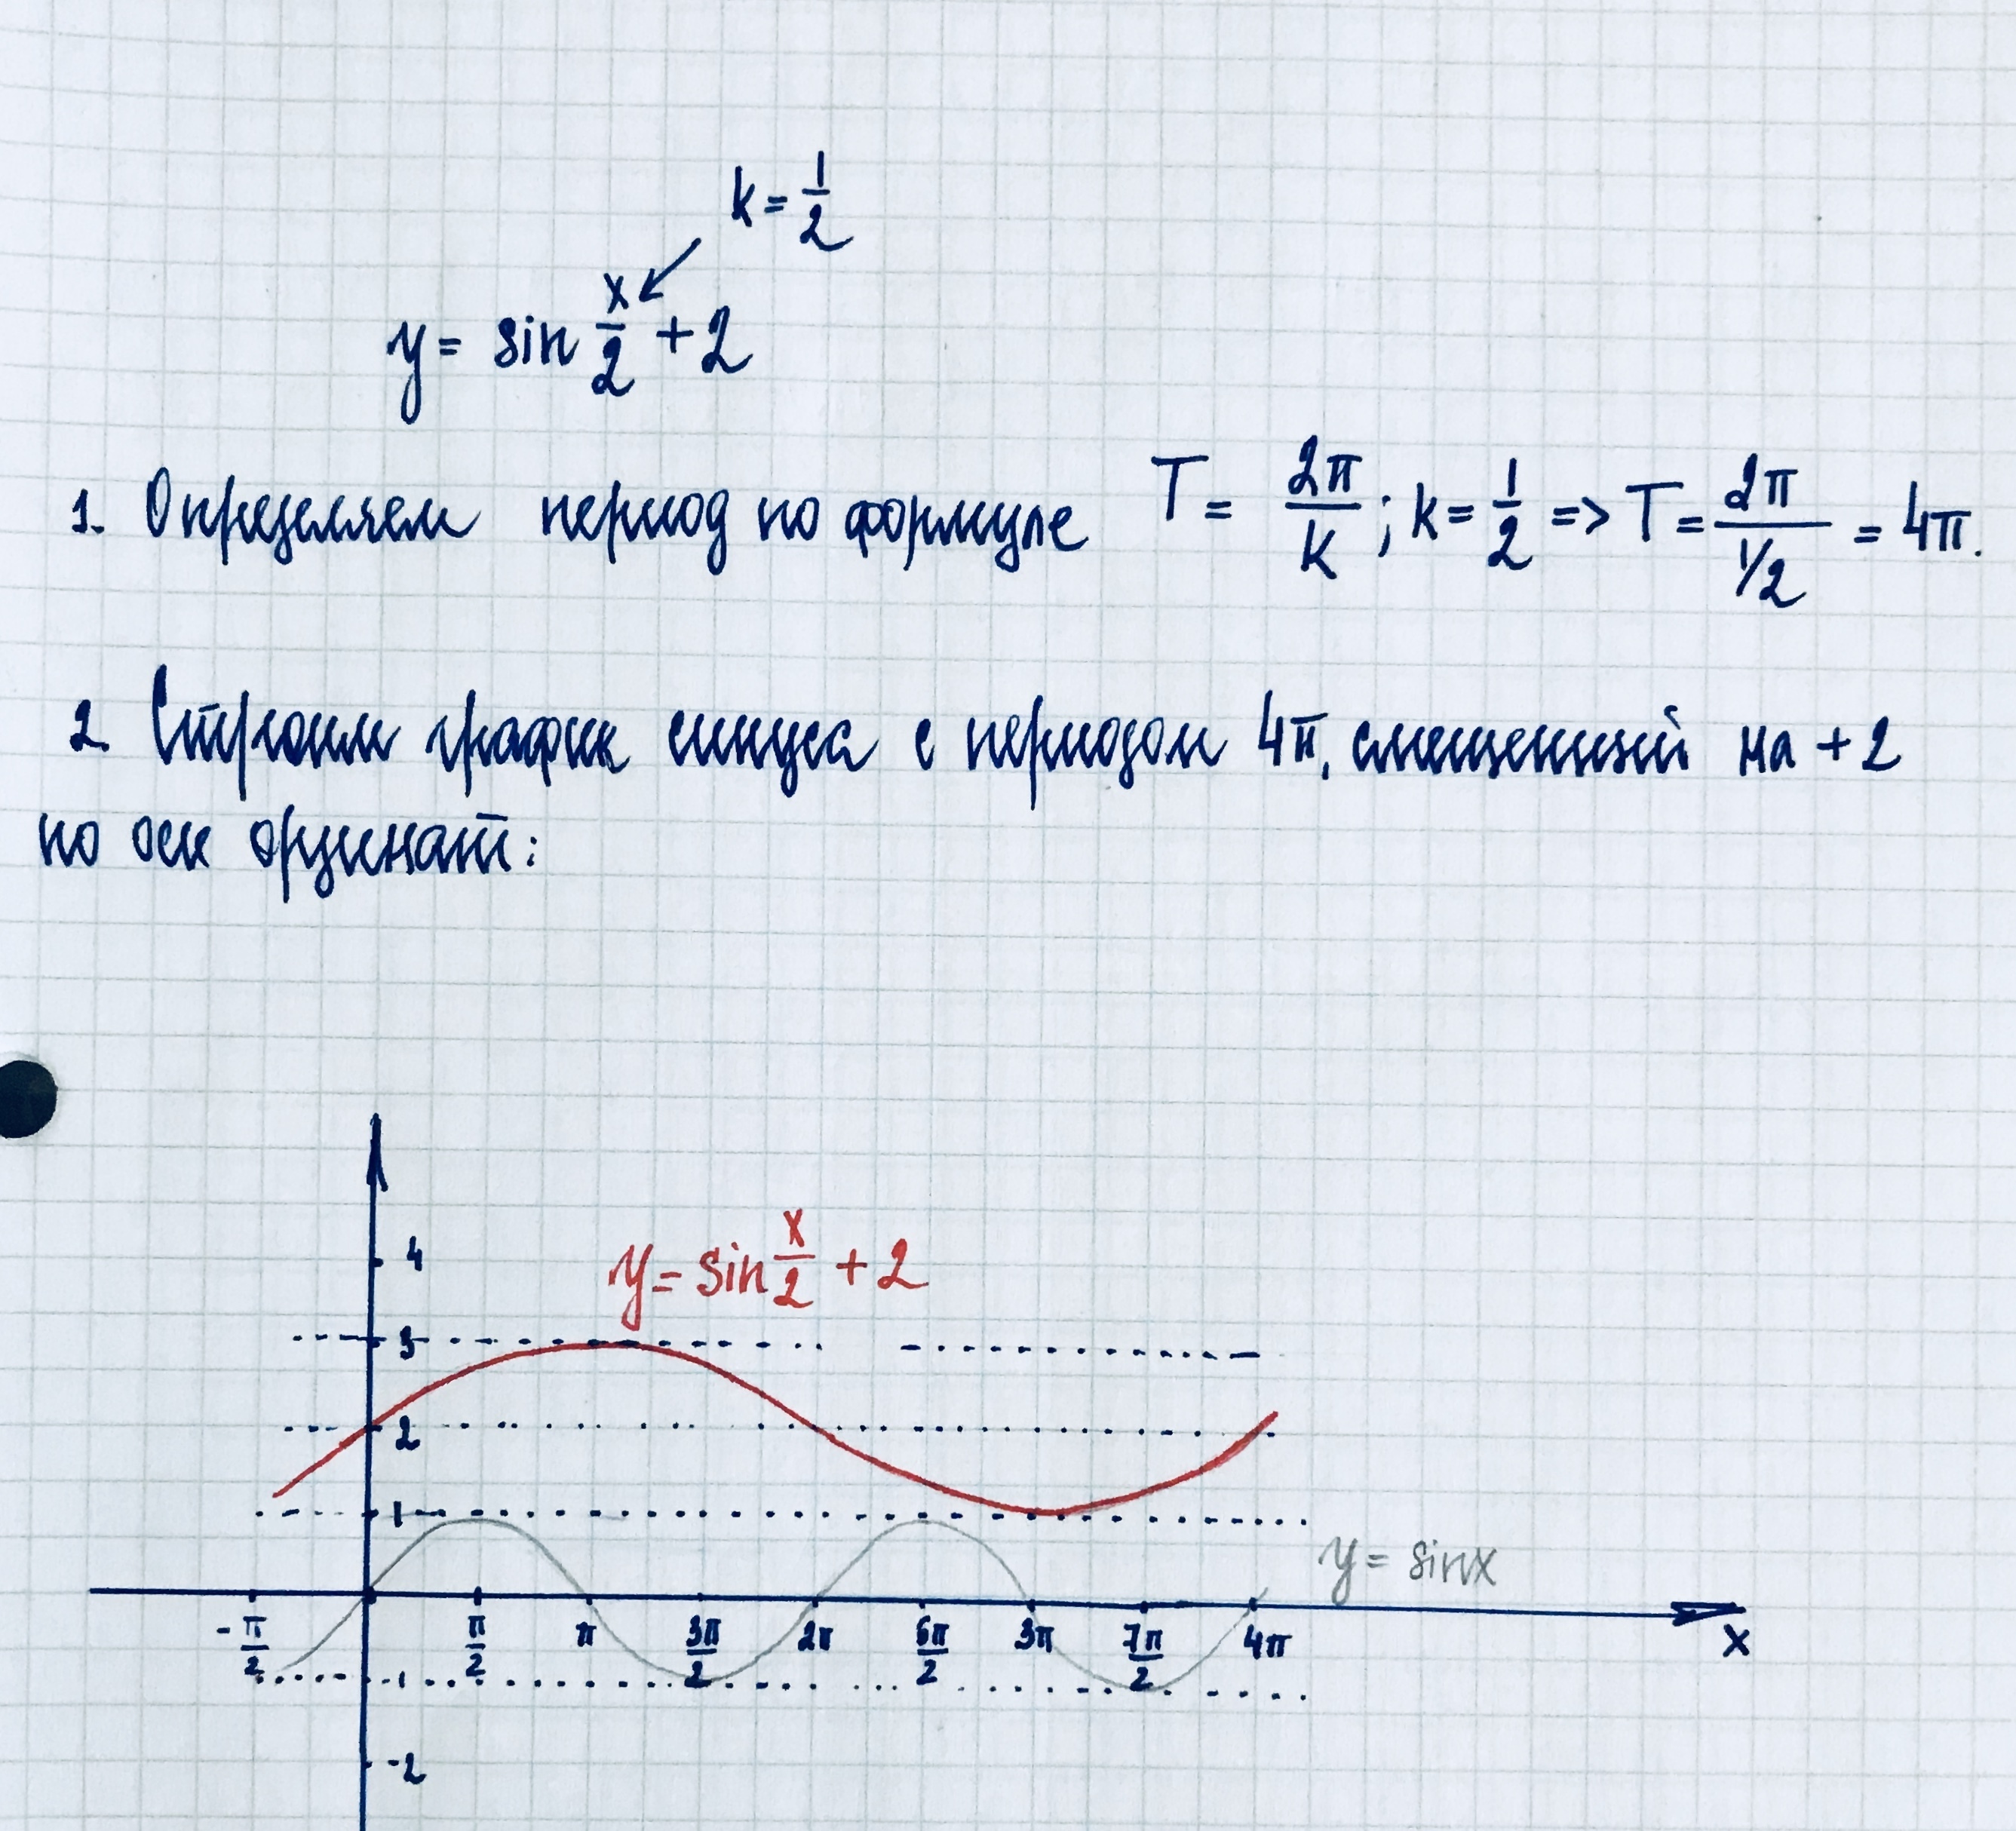 k = 1/2
y = sin x/2 + 2
1. Определяем период по формуле T = 2π/k ; k = 1/2 => T = 2π/1/2 = 4π.
2. Строим график синуса с периодом 4π, смещенный на +2
по оси ординат:
4
y = sin x/2 + 2
3
2
1
y = sinx
-π/2 π/2 π 3π/2 2π 5π/2 3π 7π/2 4π x
-2